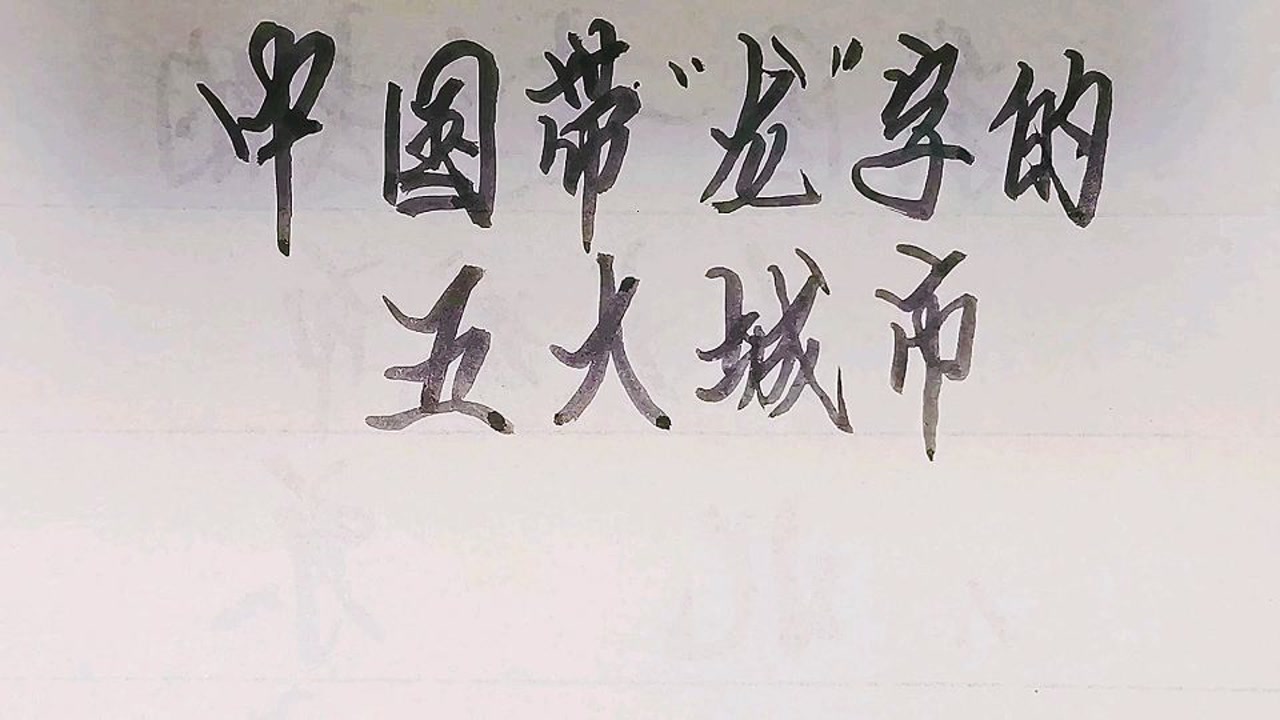 中国带“龙”字的
五大城市